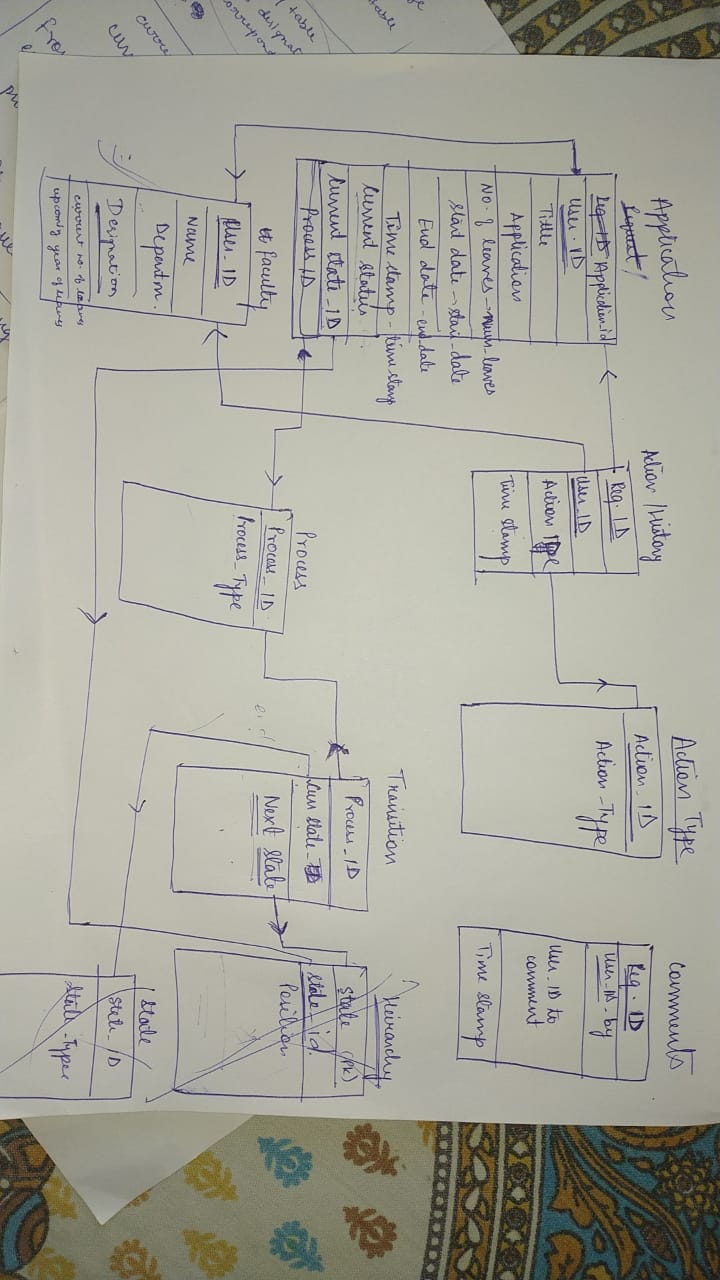 Application
Request/
Req-ID Application_id
User.ID
Title
Application
No. of leaves → num_leaves
Start date → start_date
End date - end_date
Time stamp - time stamp
Current status
Current state_ID
Process ID
Action/History
Req. ID
User_ID
Action Type
Time Stamp
Action Type
Action_ID
Action-Type
Comments
Req. ID
User_ID-by
User_ID to
comment
Time Stamp
Faculty
User_ID
Name
Departm.
Designation
current no. of leaves
upcoming year of leaves
Process
Process_ID
Process_Type
Transition
Process_ID
Curr State_ID
Next State
Heirarchy
State (PK)
State_id.
Position
State
State_ID
State_Types
table
table
designat
correspon
curre
cur